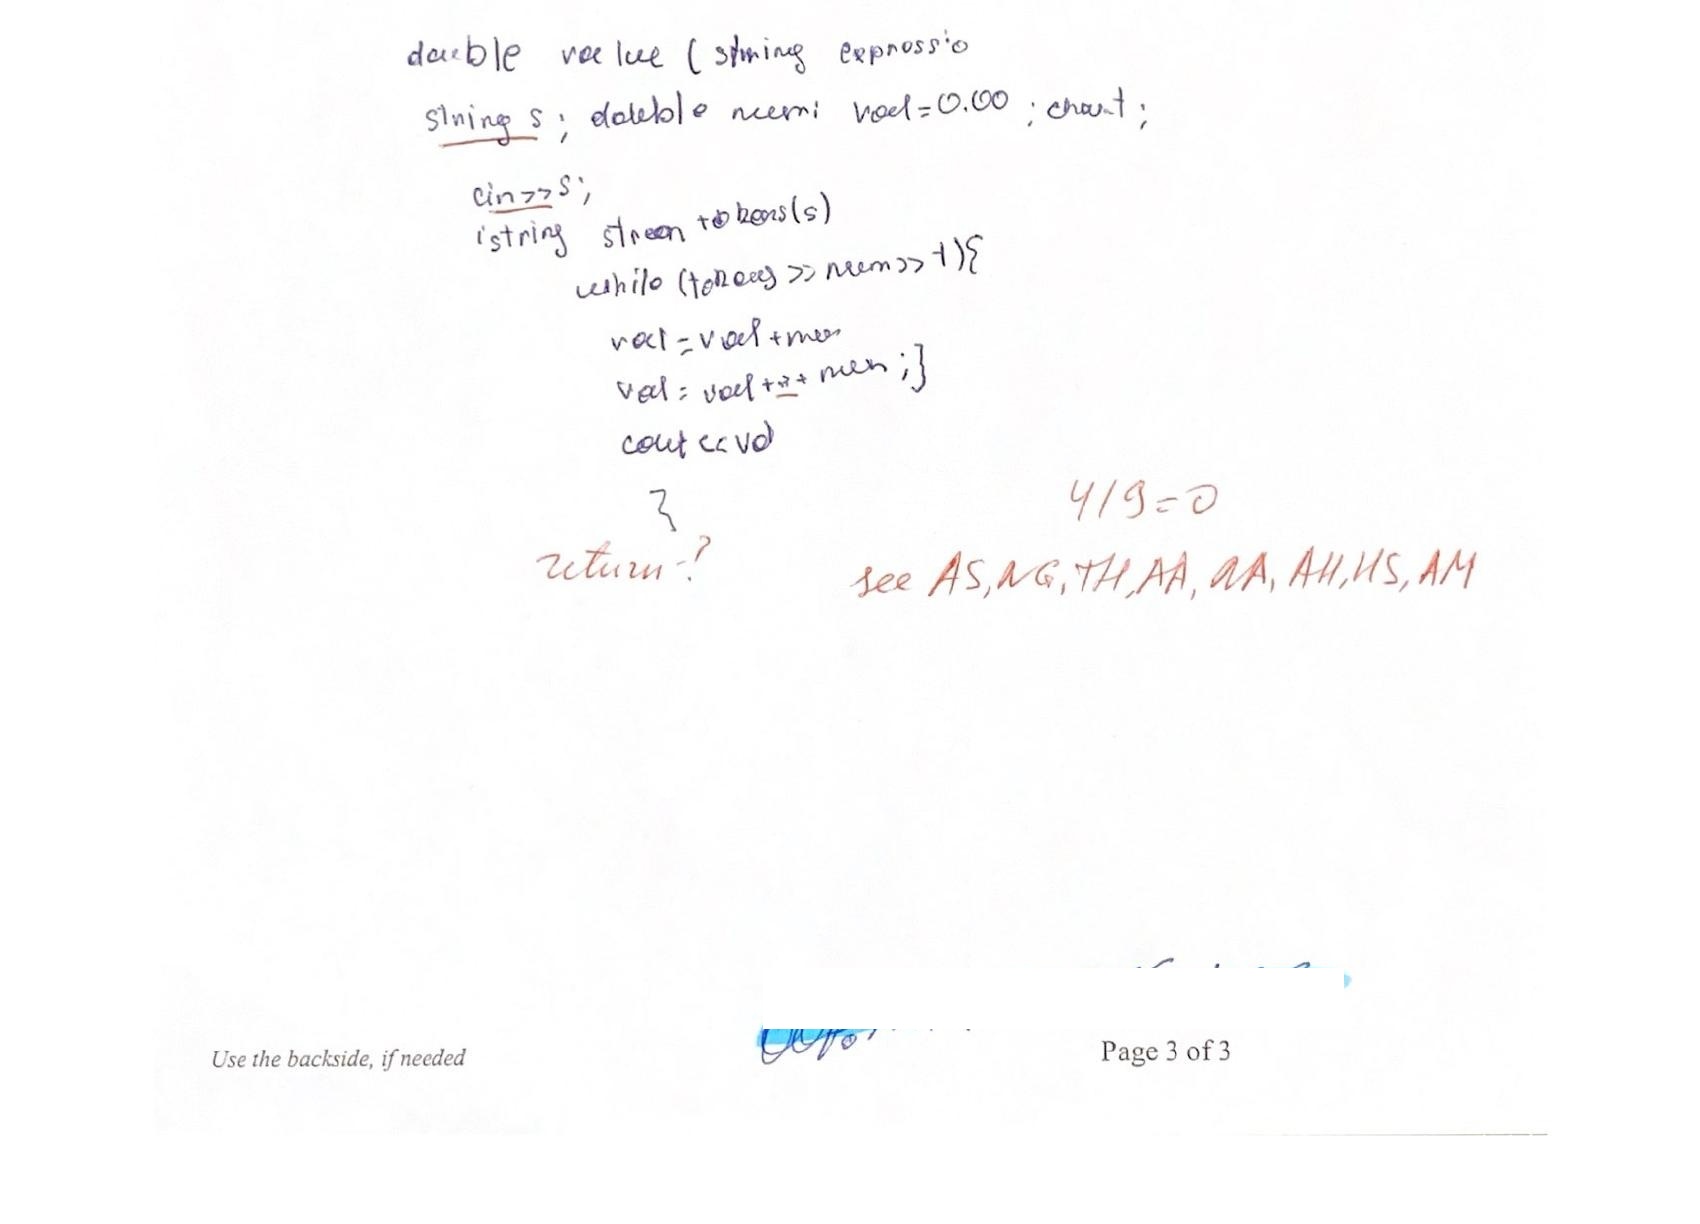 double value (string expressio
string s; double num; val=0.00; char t;
cin>>s;
istring streen tokens(s)
while (tokens >> num >> t){
val = val + num
val = val +*+ num ;}
cout << val
}
return-?
4/9=0
see AS, NG, TH, AA, AA, AH, HS, AM
Use the backside, if needed
Page 3 of 3